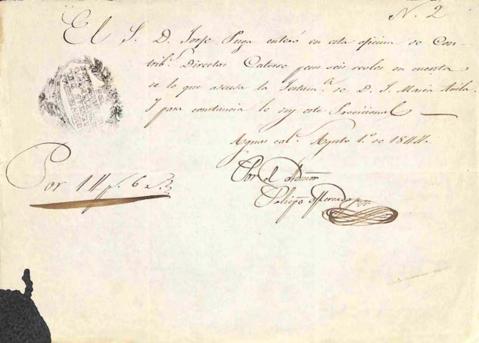 N. 2
El S. D. Jorje Puga enteró en esta oficina de Con-
trib.s Directas Catorce pesos seis reales en cuenta
de lo que adeuda la Testam.a de D. J. Maria Avila.
Y para constancia le doy este Provicional
Aguas cal.s Agosto 1.o de 1844.
Por el Admor
Felipe
Por 14 p.s 6 r.s